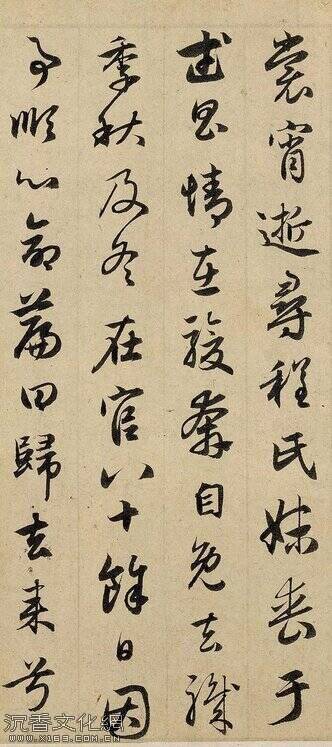 裳宵逝尋程氏妹喪于
武昌情在駿奔自免去職
季秋及冬在官八十餘日因
事順心命篇曰歸去來兮
沉香文化網